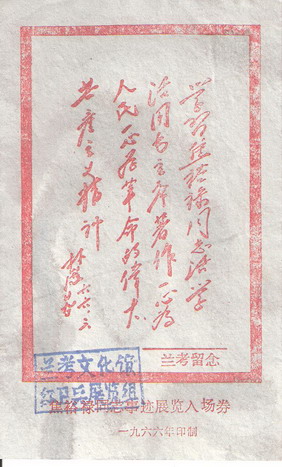 学習焦裕禄同志活学
活用毛主席著作一心为
人民一心为革命的伟大
共产主义精神
兰考留念
兰考文化馆
红卫兵展览组
焦裕禄同志事迹展览入场券
一九六六年印制